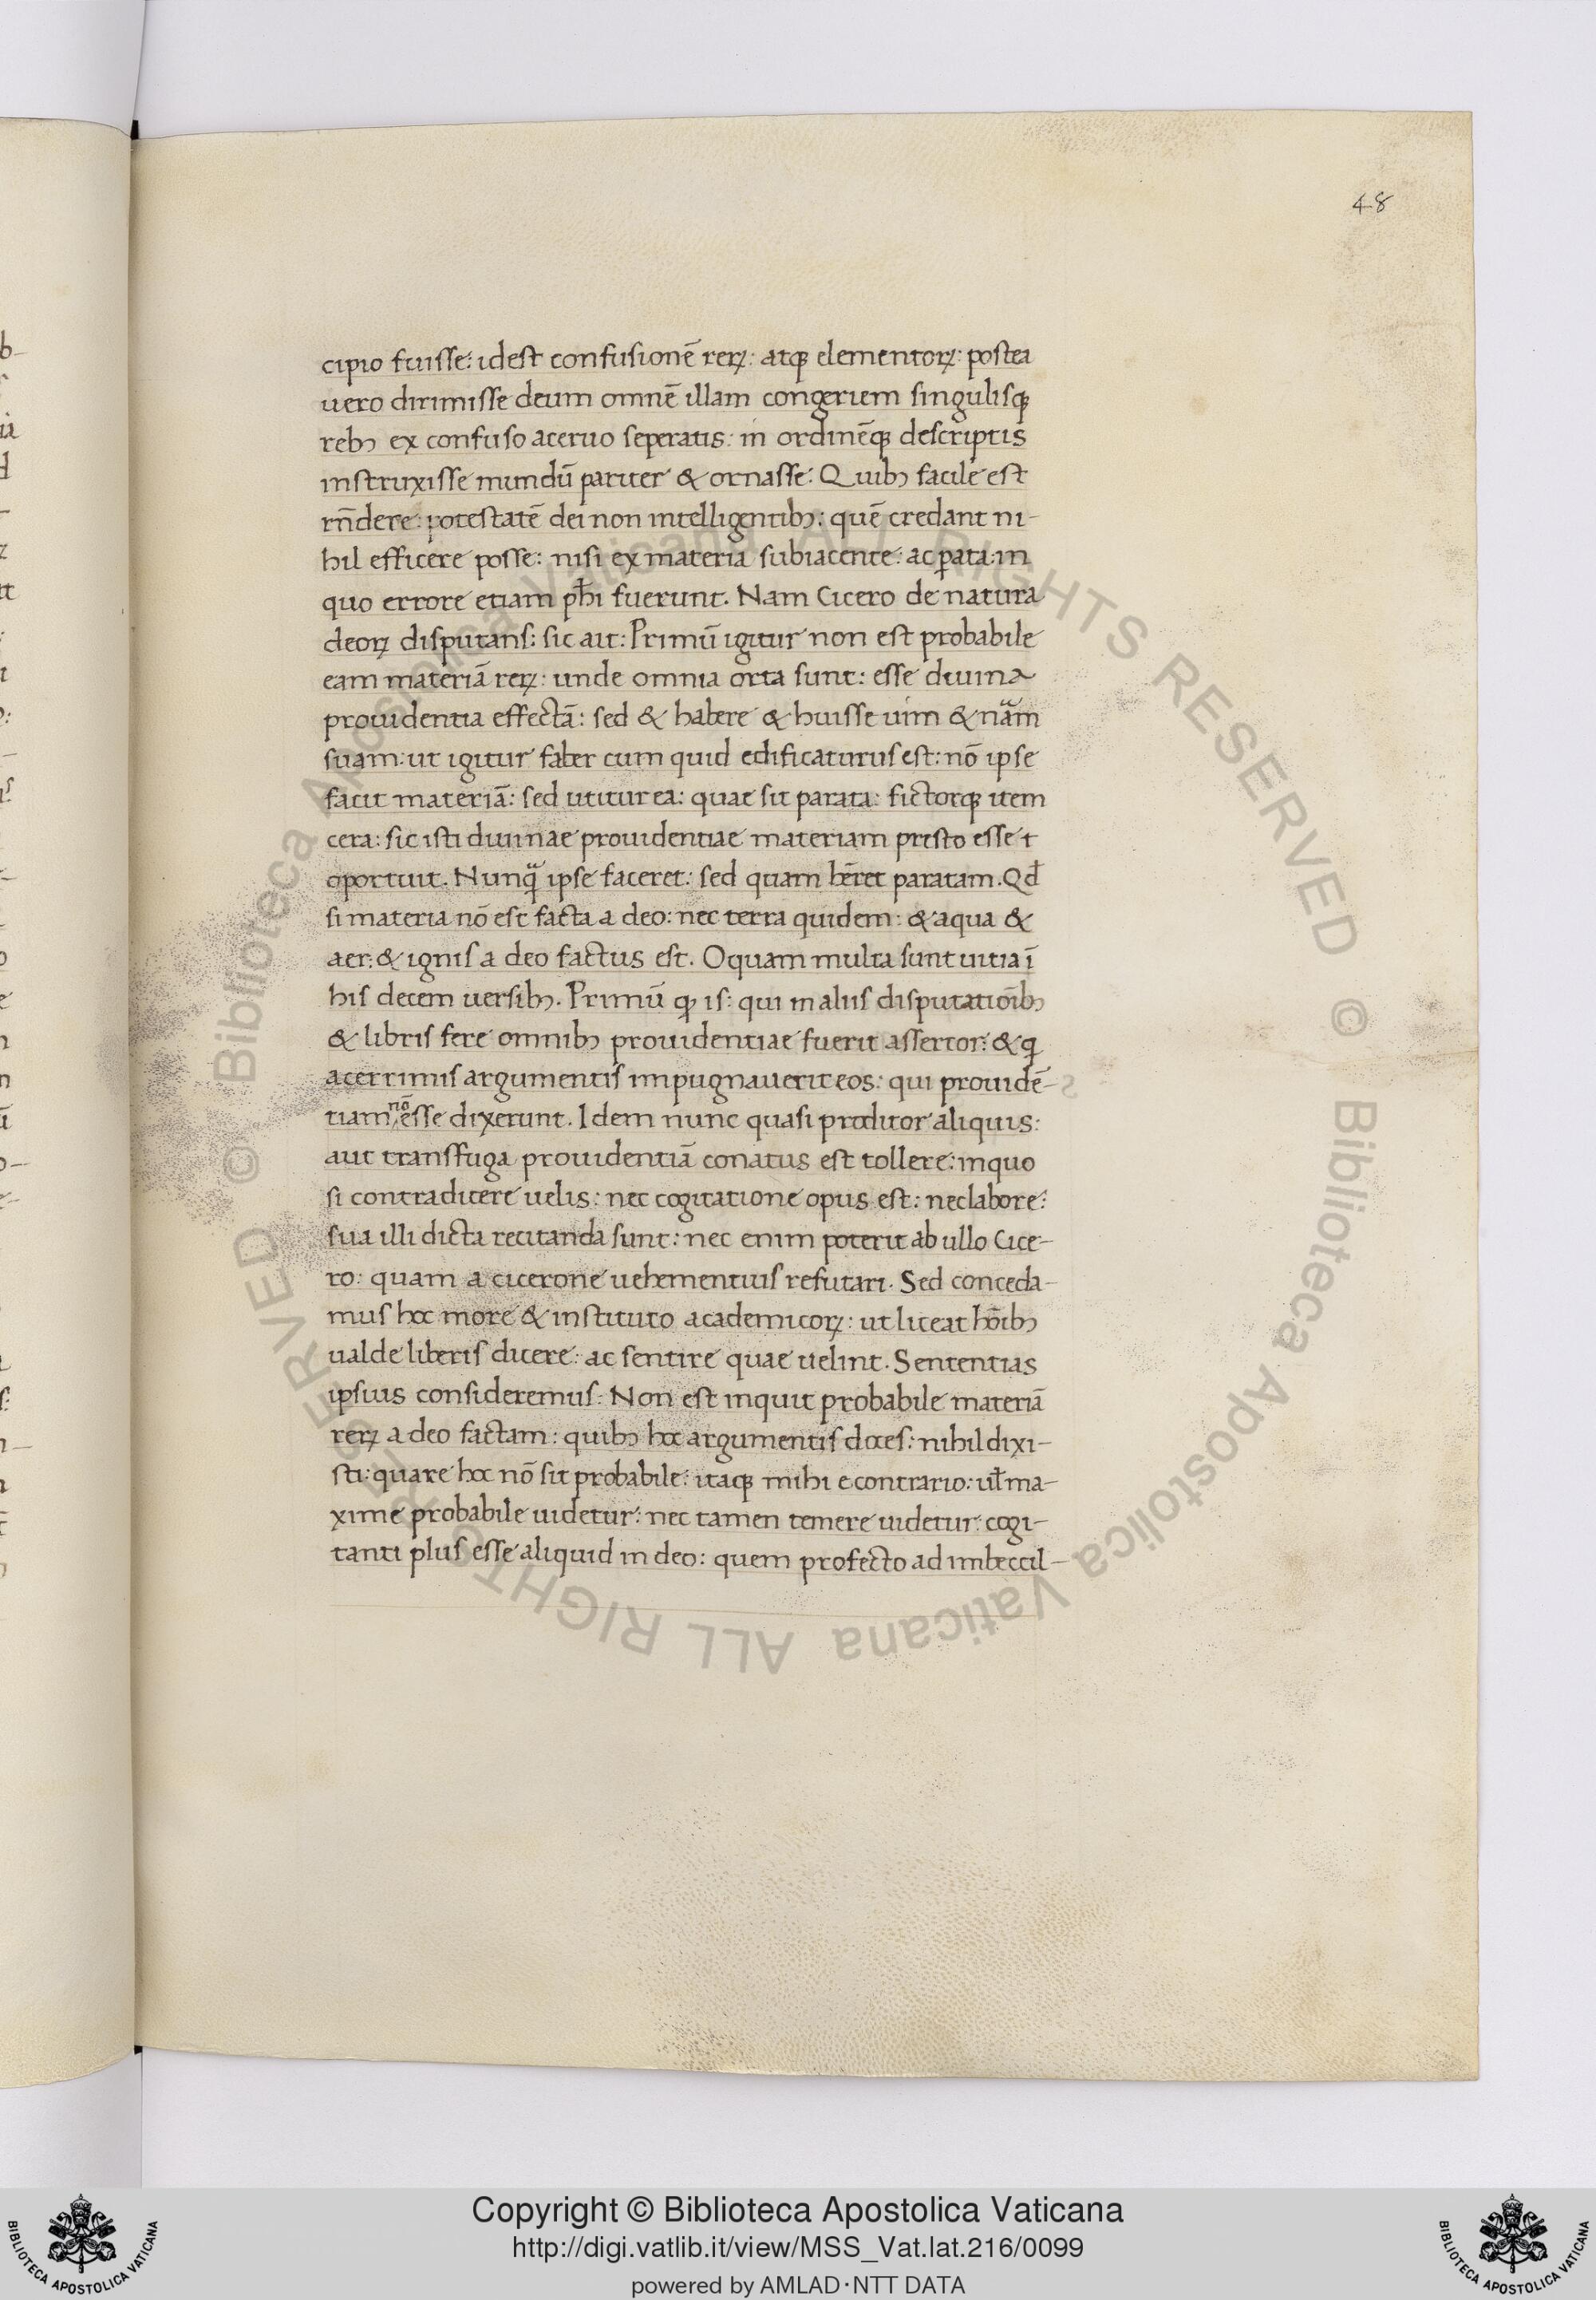 48
cipio fuisse: idest confusionē rerꝝ: atqꝫ elementorꝝ: postea
uero dirimisse deum omnē illam congeriem singulisqꝫ
rebꝫ ex confuso aceruo seperatis: in ordinēqꝫ descriptis
instruxisse mundū pariter & ornasse: Quibꝫ facile est
rn̄dere: potestatē dei non intelligentibꝫ: quē credant ni-
hil efficere posse: nisi ex materia subiacente: ac ꝑata: in
quo errore etiam ph̄i fuerunt. Nam Cicero de natura
deorꝝ disputans: sic ait: Primū igitur non est probabile
eam materiā rerꝝ: unde omnia orta sunt: esse diuina
prouidentia effectā: sed & habere & huisse uim & nãm
suam: ut igitur faber cum quid edificaturus est: nō ipse
facit materiā: sed utitur ea: quae sit parata: fictorqꝫ item
cera: sic isti diuinae prouidentiae materiam presto esse t
oportuit. Nunq̃ ipse faceret: sed quam hēret paratam. Qđ
si materia nō est facta a deo: nec terra quidem: & aqua &
aer: & ignis a deo factus est. O quam multa sunt uitia ī
his decem uersibꝫ. Primū qꝫ is: qui in aliis disputatiōibꝫ
& libris fere omnibꝫ prouidentiae fuerit assertor: & q
acerrimis argumentis impugnauerit eos: qui prouidē-
tiam nō esse dixerunt. Idem nunc quasi proditor aliquis:
aut transfuga prouidentiā conatus est tollere: in quo
si contradicere uelis: nec cogitatione opus est: nec labore:
sua illi dicta recitanda sunt: nec enim poterit ab ullo Cice-
ro: quam a cicerone uehementius refutari. Sed conceda-
mus hoc more & instituto academicorꝝ: ut liceat hōibꝫ
ualde liberis dicere: ac sentire quae uelint. Sententias
ipsius consideremus: Non est inquit probabile materiā
rerꝝ a deo factam: quibꝫ hoc argumentis doces: nihil dixi-
sti: quare hoc nō sit probabile: itaqꝫ mihi econtrario: uł ma-
xime probabile uidetur: nec tamen temere uidetur: cogi-
tanti plus esse aliquid in deo: quem profecto ad imbeccil-
© Biblioteca Apostolica Vaticana ALL RIGHTS RESERVED © Biblioteca Apostolica Vaticana ALL RIGHTS RESERVED
Copyright © Biblioteca Apostolica Vaticana
http://digi.vatlib.it/view/MSS_Vat.lat.216/0099
powered by AMLAD·NTT DATA
BIBLIOTECA APOSTOLICA VATICANA
BIBLIOTECA APOSTOLICA VATICANA